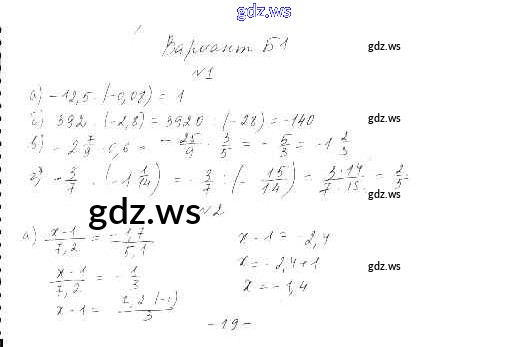 gdz.ws
Вариант Б1
gdz.ws
№1
а) -12,5 · (-0,08) = 1
б) 392 : (-2,8) = 3920 : (-28) = -140
gdz.ws
в) -2 7/9 · 0,6 = -25/9 · 3/5 = -5/3 = -1 2/3
г) -3/7 : (-1 1/14) = -3/7 : (-15/14) = 3·14/7·15 = 2/5
gdz.ws
gdz.ws
№2
а) x-1/7,2 = -1,7/5,1
x-1 = -2,4
x-1/7,2 = -1/3
x = -2,4+1
gdz.ws
x-1 = 7,2·(-1)/3
x = -1,4
-19-